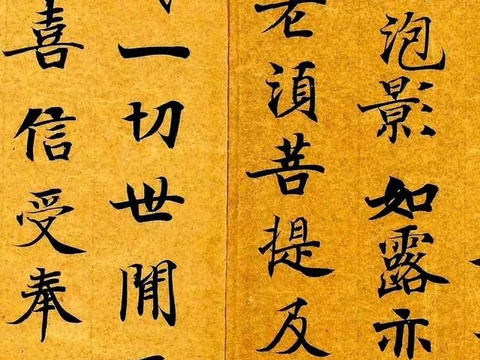 泡影如露亦
老須菩提及
一切世間
喜信受奉